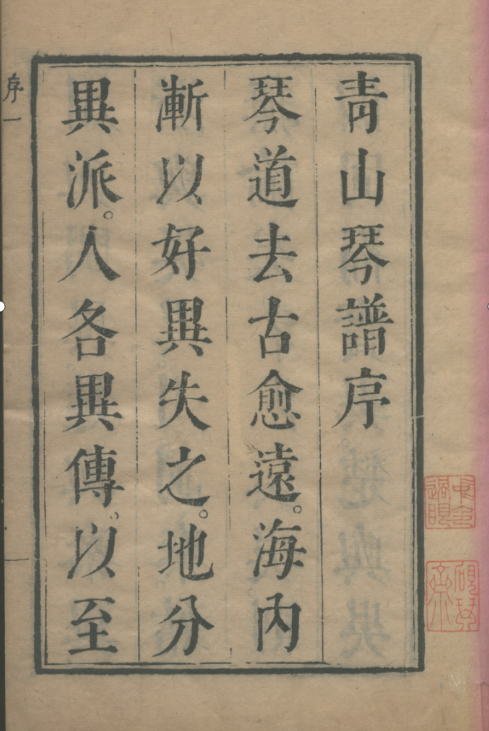 青山琴譜序
琴道去古愈遠。海内
漸以好異失之。地分
異派。人各異傳。以至
序一